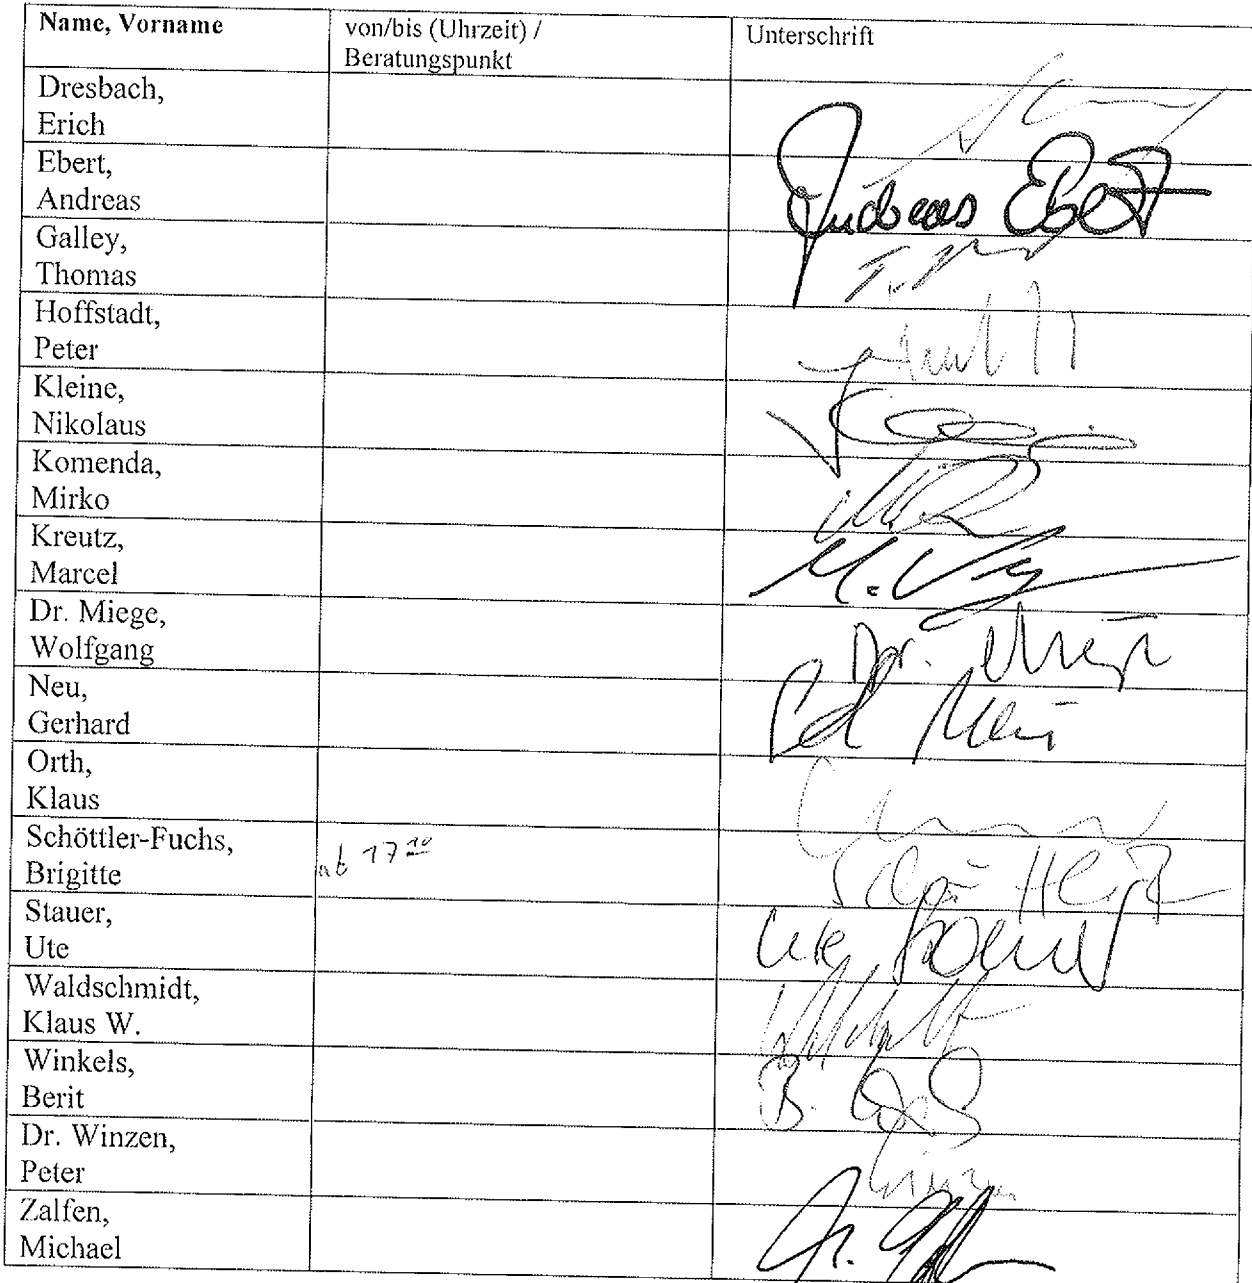 Name, Vorname
von/bis (Uhrzeit) /
Beratungspunkt
Unterschrift
Dresbach,
Erich
Ebert,
Andreas
Andreas Ebert
Galley,
Thomas
Hoffstadt,
Peter
Kleine,
Nikolaus
Komenda,
Mirko
Kreutz,
Marcel
M.
Dr. Miege,
Wolfgang
Dr. Miege
Neu,
Gerhard
Orth,
Klaus
Schöttler-Fuchs,
Brigitte
ab 17 10
Stauer,
Ute
Ute
Waldschmidt,
Klaus W.
Winkels,
Berit
B.
Dr. Winzen,
Peter
Winzen
Zalfen,
Michael